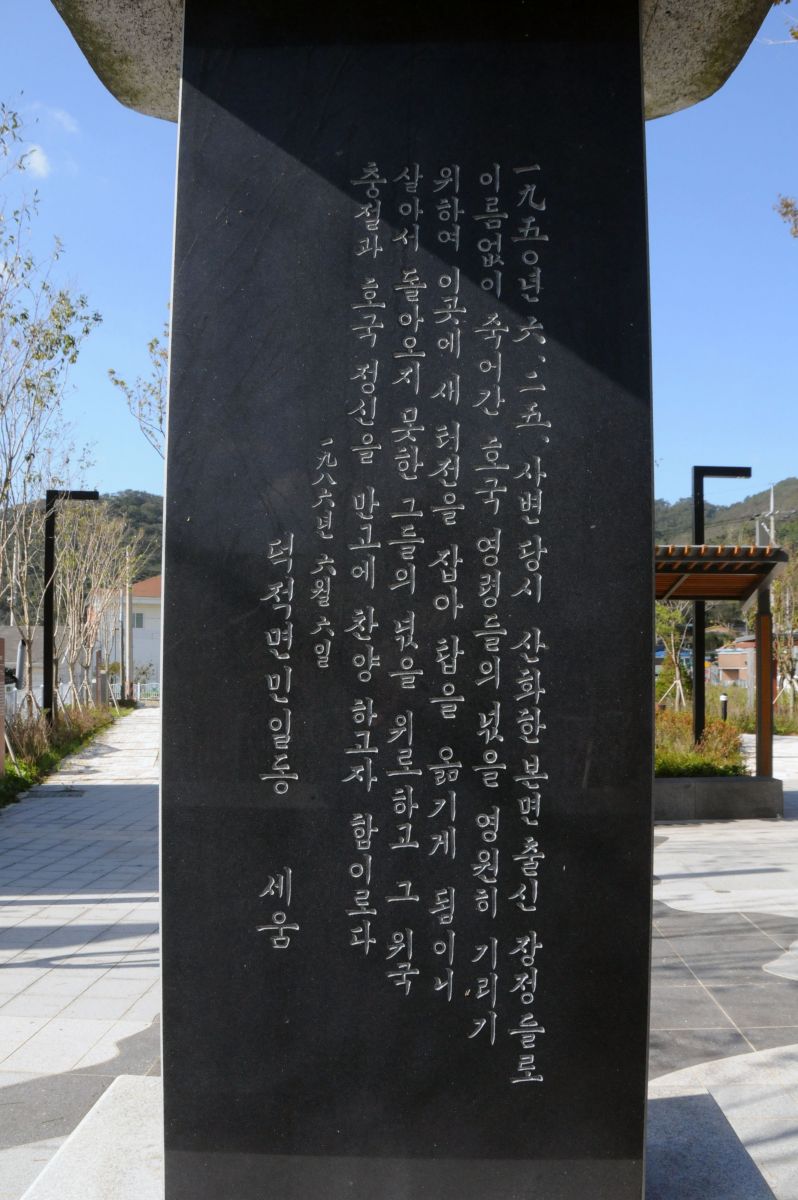 一九五〇년 六、二五、사변 당시 산화한 본면 출신 장정들로
이름없이 죽어간 호국 영령들의 넋을 영원히 기리기
위하여 이곳에 새 터전을 잡아 탑을 옮기게 됨이니
살아서 돌아오지 못한 그들의 넋을 위로하고 그 위국
충절과 호국 정신을 만고에 찬양 하고자 함이로다
一九八六년 六월 六일
덕적면민일동 세움